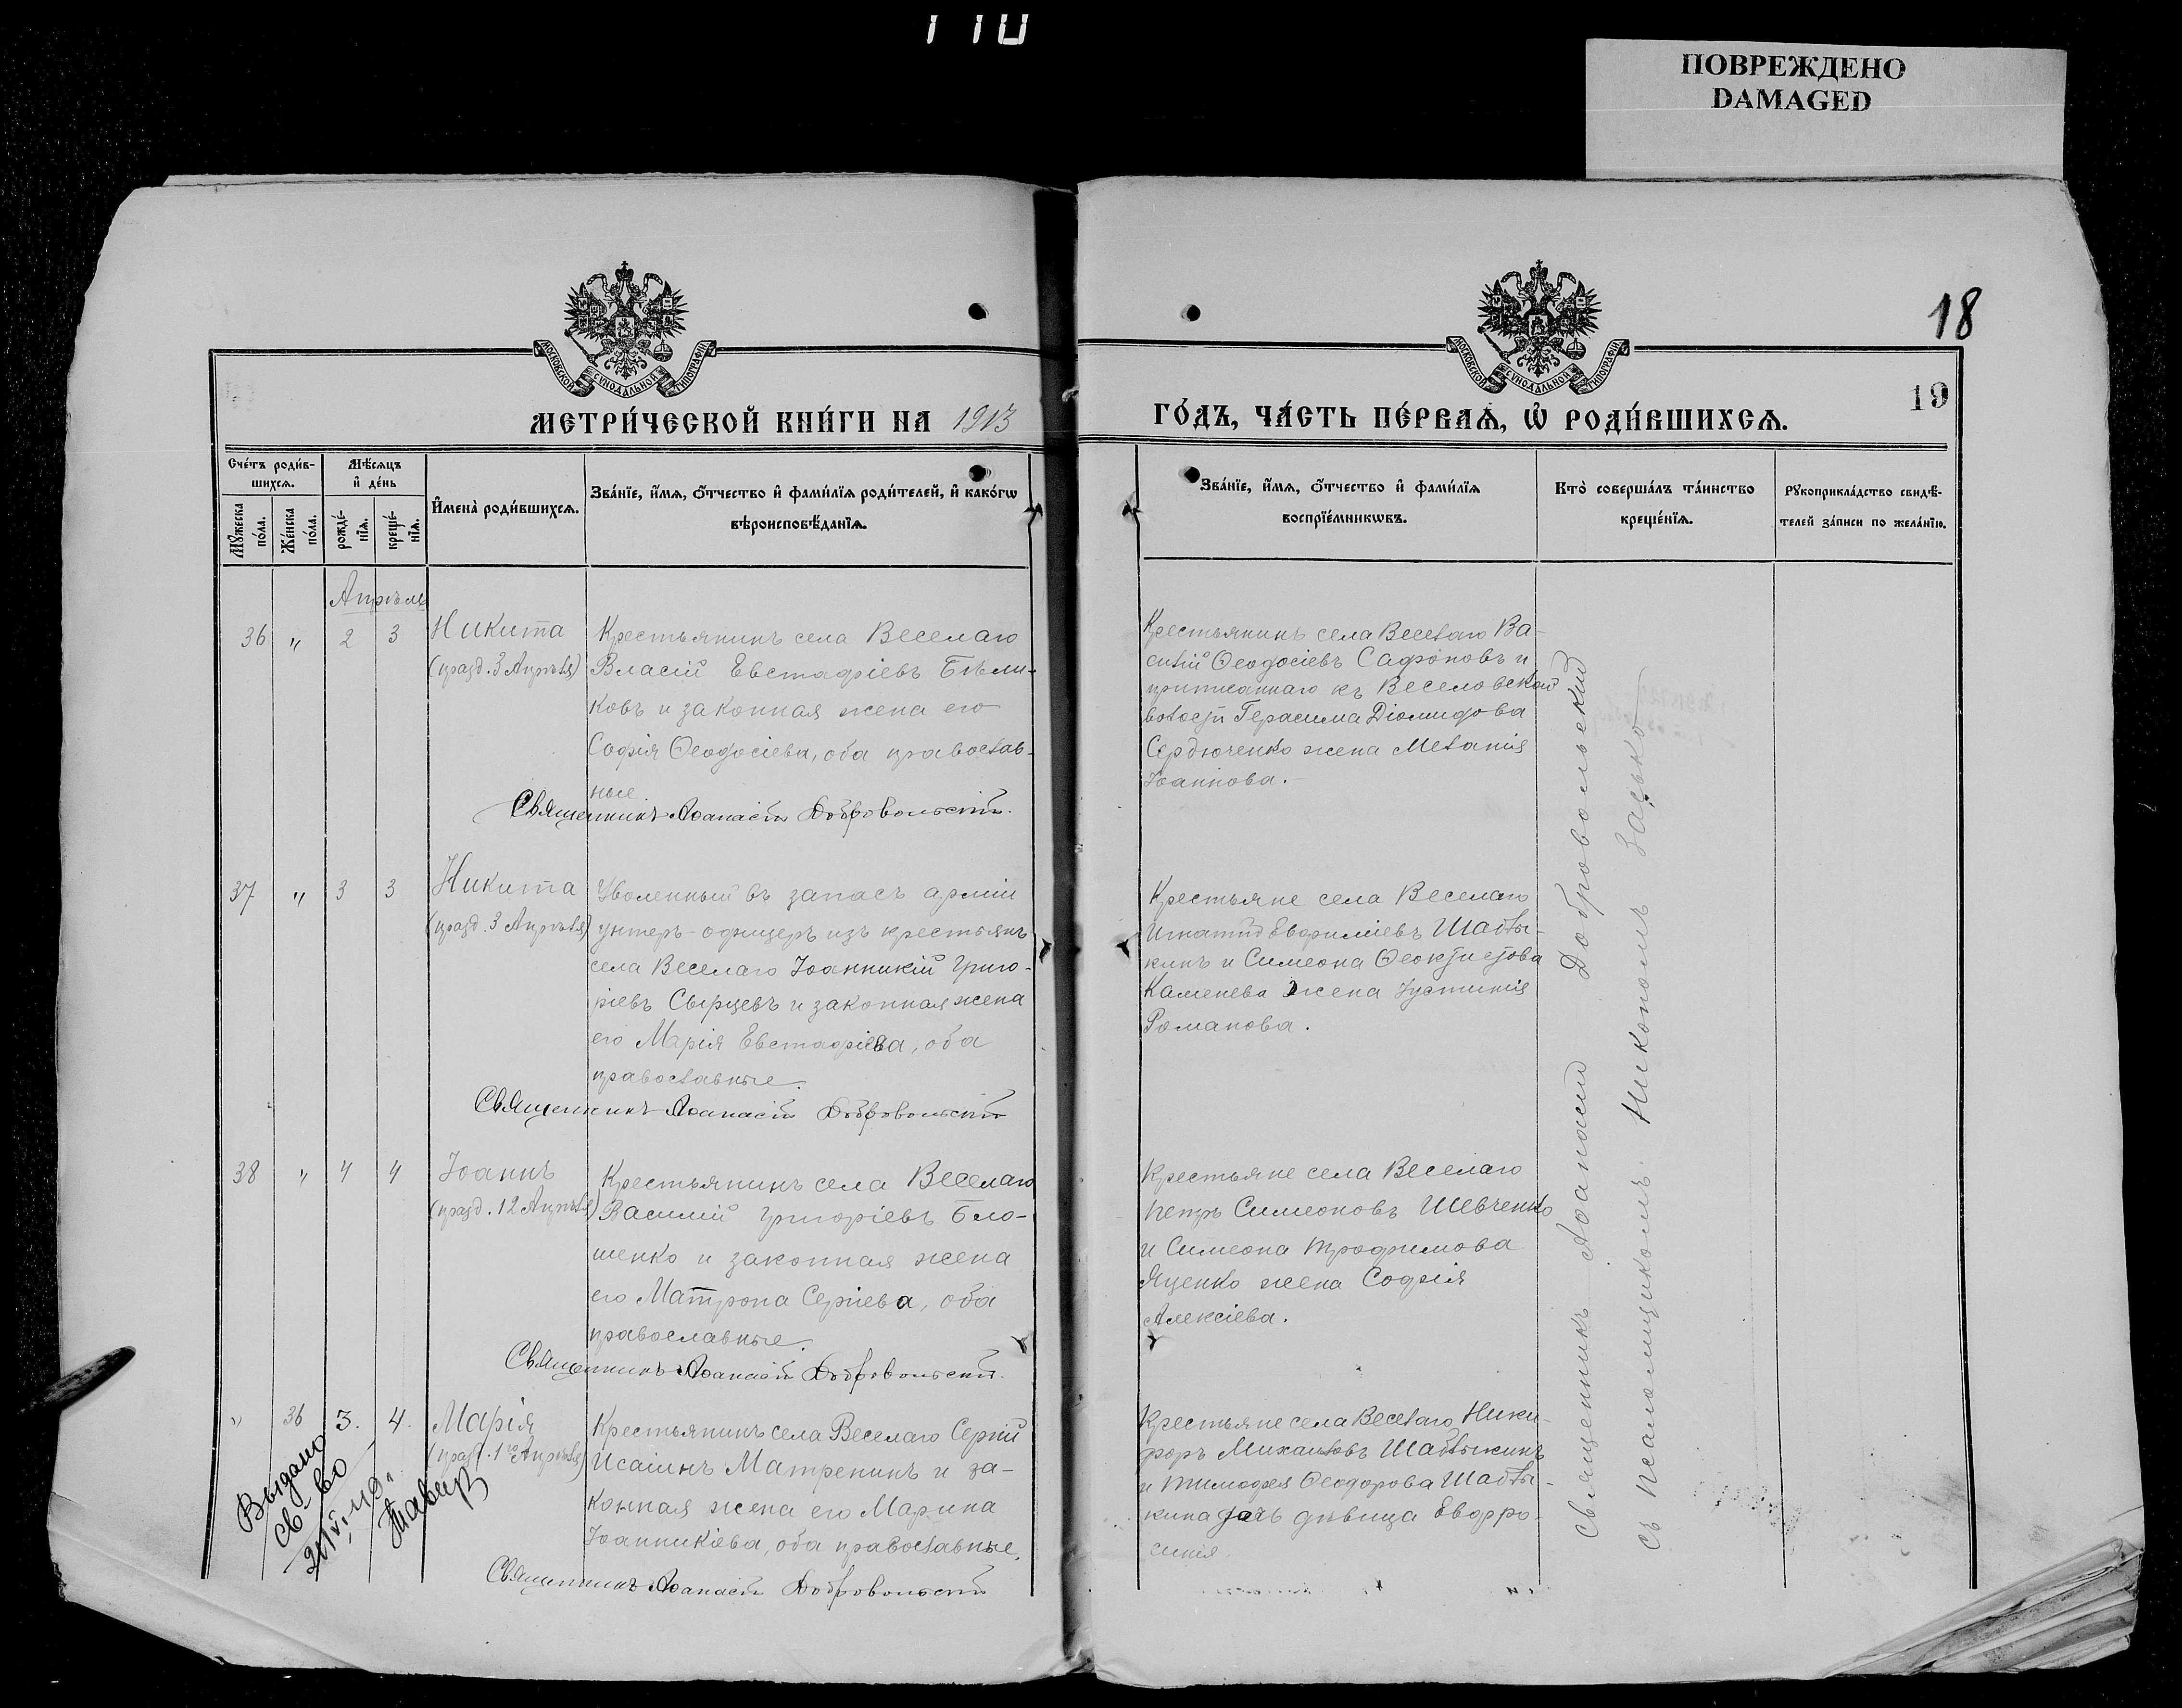 110
ПОВРЕЖДЕНО
DAMAGED
18
19
МОСКОВСКОЙ СѴНОДАЛЬНОЙ ТИПОГРАФІИ
МОСКОВСКОЙ СѴНОДАЛЬНОЙ ТИПОГРАФІИ
МЕТРИ́ЧЕСКОЙ КНИ́ГИ НА 1913
ГО́ДЪ, ЧА́СТЬ ПЕ́РВАѦ, Ѡ҆ РОДИ́ВШИХСѦ.
Сче́тъ роди́в-
шихсѧ.
Мѣ́сѧцъ
и҆ де́нь
Мꙋ́жеска
по́ла.
Же́нска
по́ла.
рожде́-
нїѧ.
креще́-
нїѧ.
И҆мена̀ роди́вшихсѧ.
Зва́нїе, и҆́мѧ, ѻ҆́тчество и҆ фами́лїѧ роди́телей, и҆ како́гѡ
вѣроисповѣ́данїѧ.
Зва́нїе, и҆́мѧ, ѻ҆́тчество и҆ фами́лїѧ
воспрїе́мникѡвъ.
Кто̀ соверша́лъ та́инство
креще́нїѧ.
Рꙋкоприкла́дство свидѣ́-
телей за́писи по жела́нїю.
Апрѣль
36 " 2 3 Никита
(празд. 3 Апрѣля)
Крестьянинъ села Веселаго
Власій Евстафіевъ Бѣли-
ковъ и законная жена его
Софія Ѳеодосіева, оба православ-
ные.
Священникъ Аѳанасій Добровольскій.
Крестьянинъ села Веселаго Ва-
силій Ѳеодосіевъ Сафоновъ и
приписаннаго къ Веселовской
волости Герасима Діомидова
Сердюченко жена Меланія
Іоаннова.
37 " 3 3 Никита
(празд. 3 Апрѣля)
Уволенный въ запасъ арміи
унтеръ-офицеръ изъ крестьянъ
села Веселаго Іоанникій Григо-
ріевъ Сырцевъ и законная жена
его Марія Евстафіева, оба
православные.
Священникъ Аѳанасій Добровольскій
Крестьяне села Веселаго
Игнатій Евфиміевъ Шаблы-
кинъ и Симеона Ѳеоктистова
Каменева жена Іустинія
Романова.
38 " 4 4 Іоаннъ
(празд. 12 Апрѣля)
Крестьянинъ села Веселаго
Василій Григоріевъ Бло-
шенко и законная жена
его Матрона Сергіева, оба
православные.
Священникъ Аѳанасій Добровольскій.
Крестьяне села Веселаго
Петръ Симеоновъ Шевченко
и Симеона Трофимова
Яценко жена Софія
Алексіева.
" 36 3. 4. Марія
(празд. 1го Апрѣля)
Крестьянинъ села Веселаго Сергій
Исаіинъ Матренинъ и за-
конная жена его Марина
Іоанникіева, оба православные.
Священникъ Аѳанасій Добровольскій
Крестьяне села Веселаго Ники-
форъ Михаиловъ Шаблыкинъ
и Тимофея Ѳеодорова Шаблы-
кина дочь дѣвица Евфро-
синія.
Выдано
св-во
Священникъ Аѳанасій Добровольскій
съ псаломщикомъ Никономъ Засько